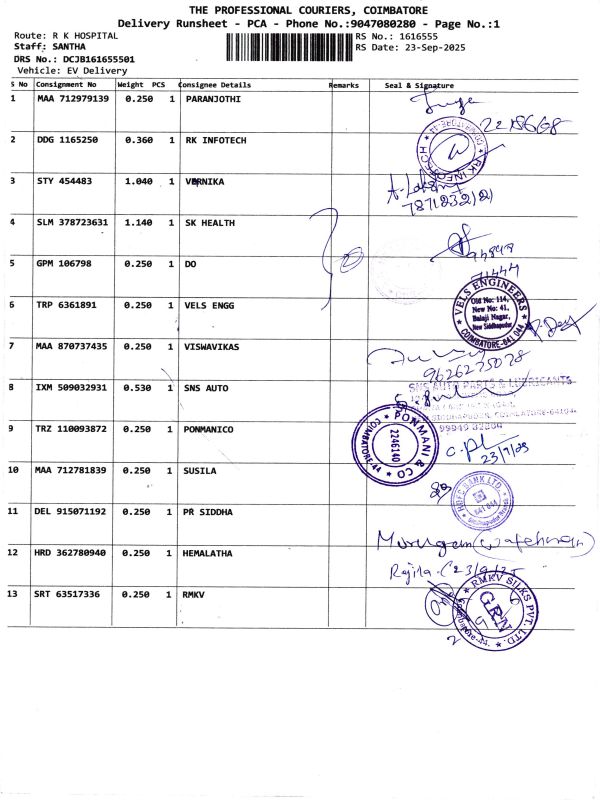 THE PROFESSIONAL COURIERS, COIMBATORE
Delivery Runsheet - PCA - Phone No.:9047080280 - Page No.:1
Route: R K HOSPITAL
RS No.: 1616555
Staff: SANTHA
RS Date: 23-Sep-2025
DRS No.: DCJB161655501
Vehicle: EV Delivery
S No Consignment No Weight PCS Consignee Details Remarks Seal & Signature
1 MAA 712979139 0.250 1 PARANJOTHI
2 DDG 1165250 0.360 1 RK INFOTECH
RK INFOTECH
3 STY 454483 1.040 1 VERNIKA
4 SLM 378723631 1.140 1 SK HEALTH
5 GPM 106798 0.250 1 DO
6 TRP 6361891 0.250 1 VELS ENGG
VELS ENGINEERS
Old No: 114,
New No: 41,
Balaji Nagar,
New Siddhapudur
COIMBATORE-641 044
7 MAA 870737435 0.250 1 VISWAVIKAS
9626275028
8 IXM 509032931 0.530 1 SNS AUTO
SNS AUTO PARTS & LUBRICANTS
9 TRZ 110093872 0.250 1 PONMANICO
PONMANI & CO
2246140
COIMBATORE-44
23/9/25
10 MAA 712781839 0.250 1 SUSILA
HDFC BANK LTD
11 DEL 915071192 0.250 1 PR SIDDHA
Murugan (watchman)
12 HRD 362780940 0.250 1 HEMALATHA
Rajila 23/9/25
13 SRT 63517336 0.250 1 RMKV
RMKV SILKS PVT. LTD.
GRN